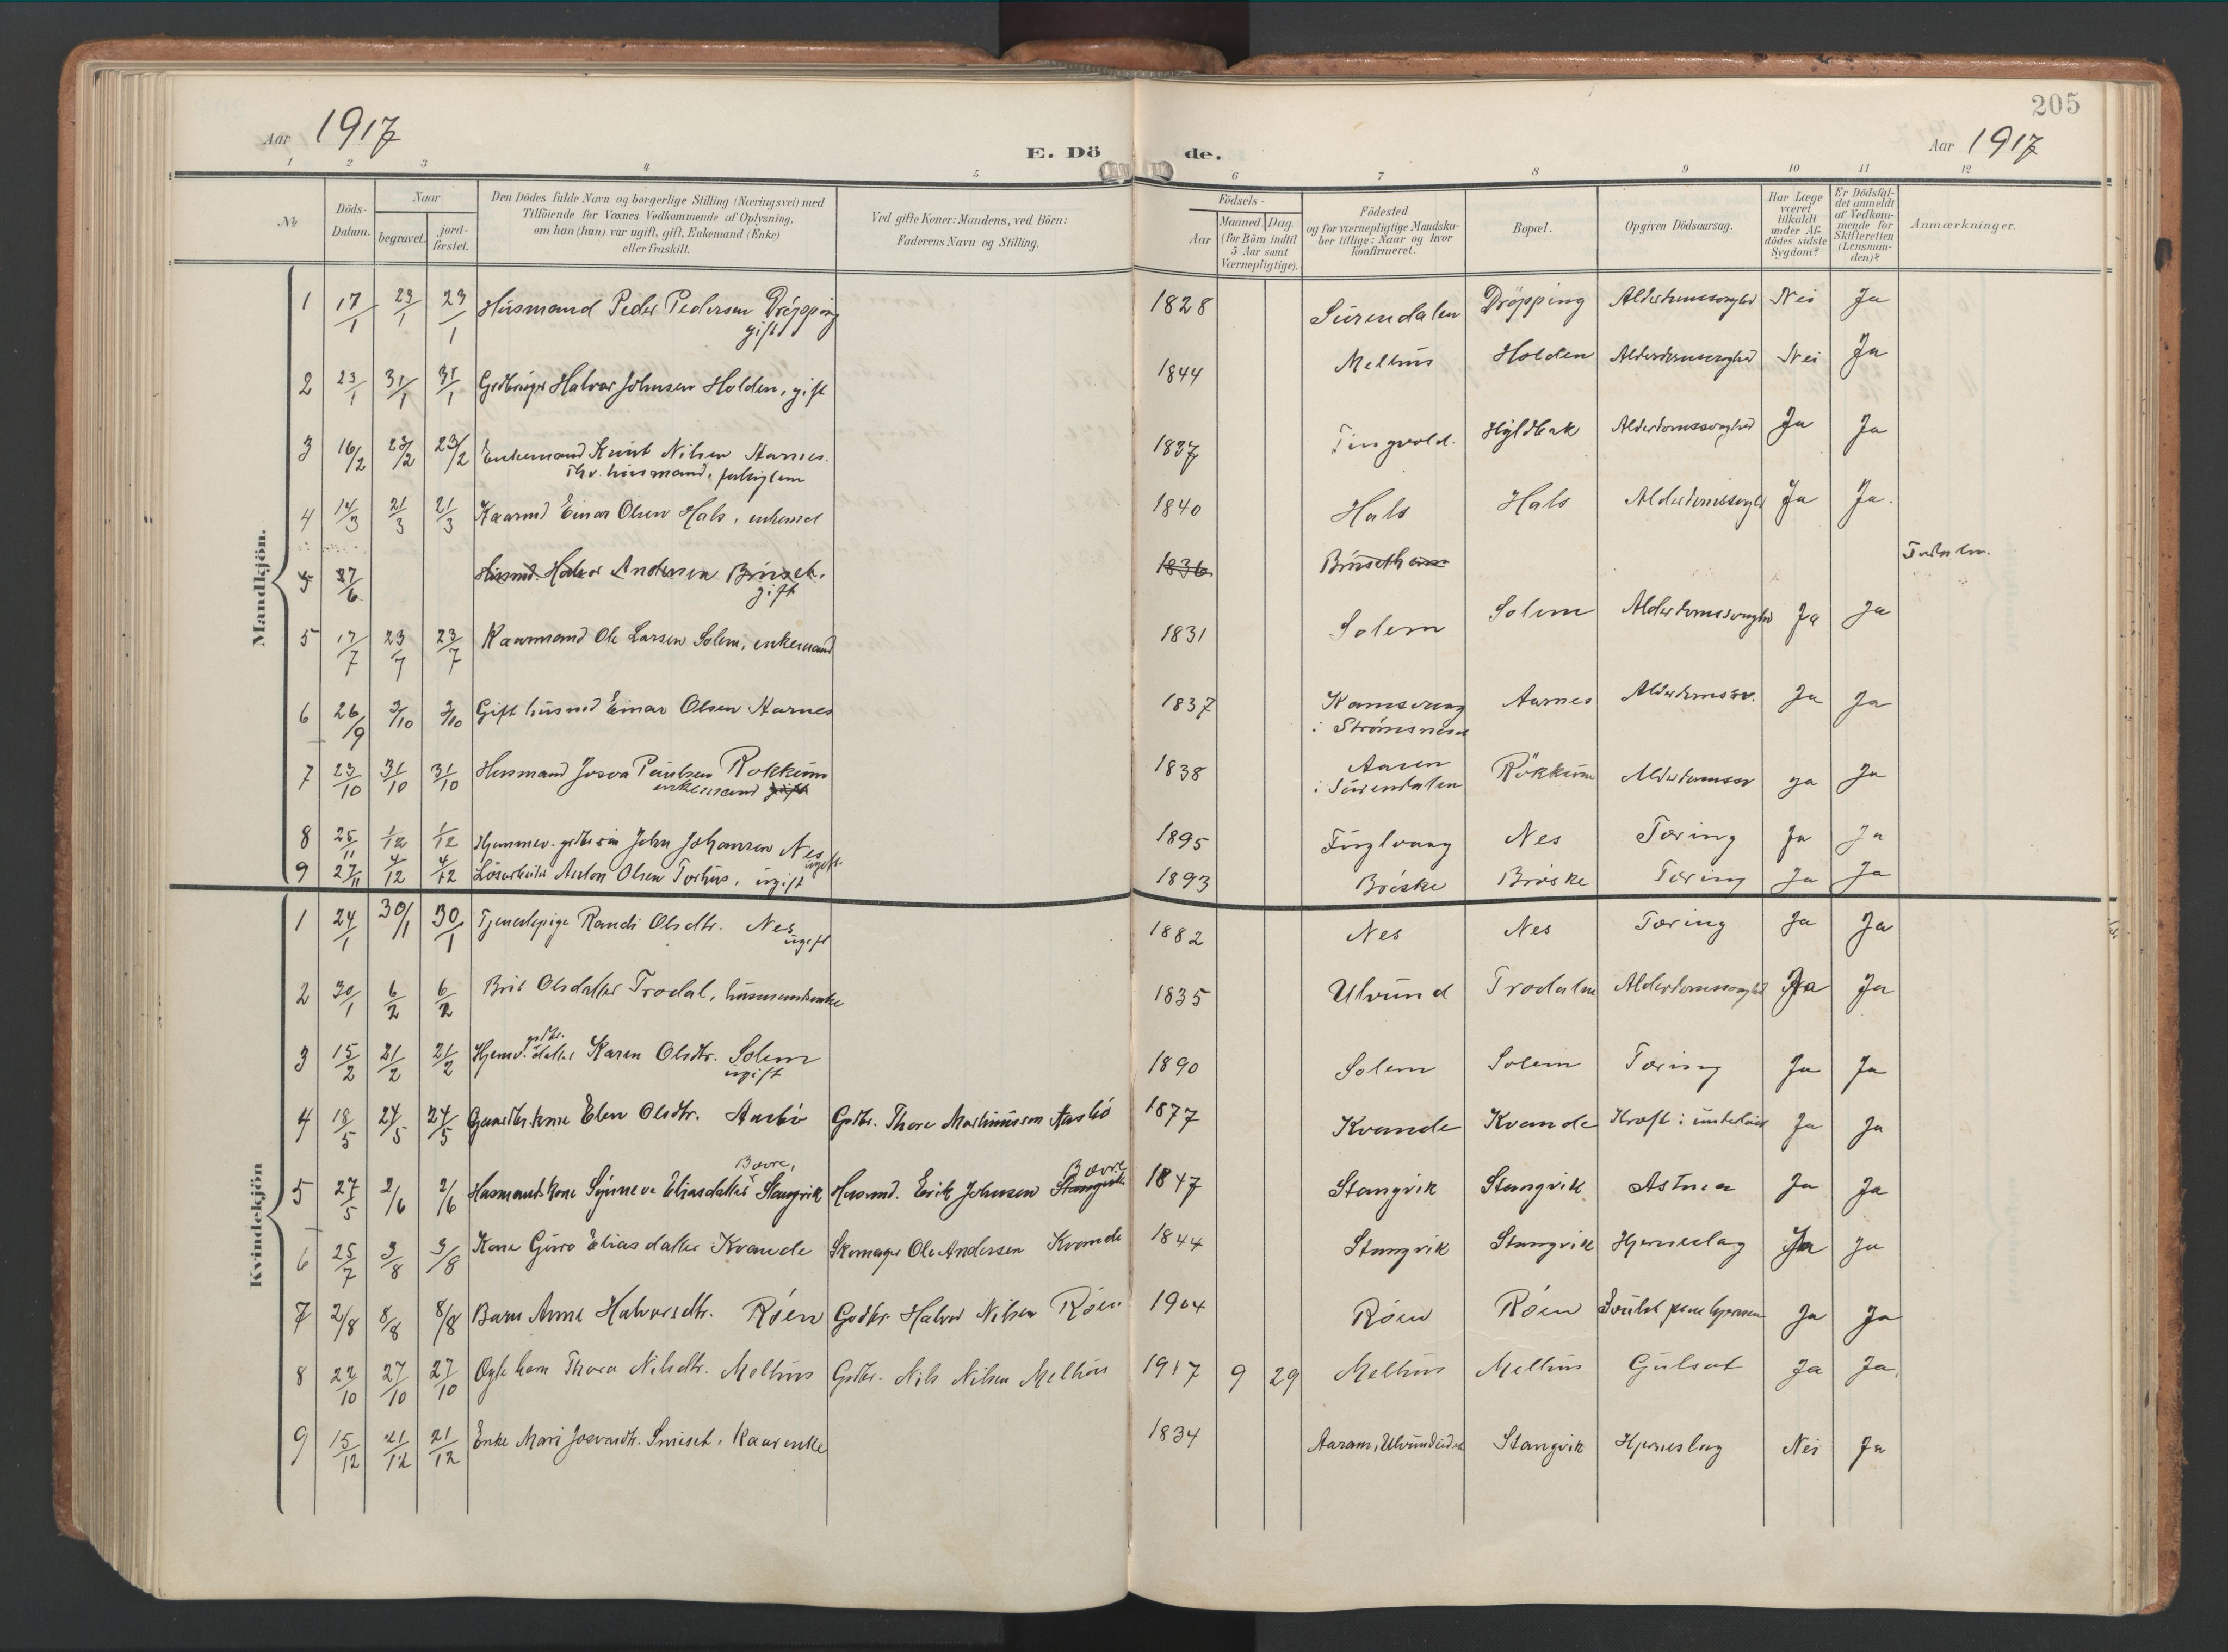 205
Aar 1917
E. Döde.
Aar 1917
1 2 3 4 5 6 7 8 9 10 11 12
No
Döds-Datum.
Naar
begravet.
jord-fæstet.
Den Dödes fulde Navn og borgerlige Stilling (Næringsvei) med
Tilföiende for Voxnes Vedkommende af Oplysning,
om han (hun) var ugift, gift, Enkemand (Enke)
eller fraskilt.
Ved gifte Koner: Mandens, ved Börn:
Faderens Navn og Stilling.
Födsels-
Aar
Maaned. Dag.
(for Börn indtil
5 Aar samt
Værnepligtige).
Födested
og for værnepligtige Mandska-
ber tillige: Naar og hvor
konfirmeret.
Bopæl.
Opgiven Dödsaarsag.
Har Læge
været
tilkaldt
under Af-
dödes sidste
Sygdom?
Er Dödsfal-
det anmeldt
af Vedkom-
mende for
Skifteretten
(Lensman-
den)?
Anmærkninger.
Mandkjön.
1 17/1 23/1 23/1 Husmand Peder Pedersen Dröpping gift 1828 Surendalen Dröpping Alderdomssvaghed Nei Ja
2 23/1 31/1 31/1 Grdbruger Halvor Johnsen Holden, gift 1844 Melhus Holden Alderdomssvaghed Nei Ja
3 16/2 23/2 23/2 Enkemand Knut Nilsen Aarnes.
fhv. husmand, forliglem 1837 Tingvold. Hyldbak Alderdomssvaghed Ja Ja
4 14/3 21/3 21/3 Kaarmd Einar Olsen Hals, enkemd 1840 Hals Hals Alderdomssvaghd Ja Ja.
5 27/6 Husmd. Halvor Andersen Brúset. gift 1836 Brúsethem
5 17/7 23/7 23/7 Kaarmand Ole Larsen Solem, enkemand 1831 Solem Solem Alderdomssvaghed Ja Ja
6 26/9 3/10 3/10 Gift husmd Einar Olsen Aarnes 1837 Kamsvaag
i Strömsneset Aarnes Alderdomssv. Ja Ja
7 23/10 31/10 31/10 Husmand Josva Paulsen Rökkum
enkemand gift 1838 Aasen
i Surendalen Rökkum Alderdomssv Ja Ja
8 25/11 1/12 1/12 Hjemmev. grdbr sön John Johansen Nes ugift. 1895 Fuglvaag Nes Tæring Ja Ja
9 27/11 4/12 4/12 Lösarbeider Anton Olsen Torhus, ugift 1893 Bröske Bröske Tæring Ja Ja
Kvindekjön
1 24/1 30/1 30/1 Tjenestepige Randi Olsdtr. Nes ugift 1882 Nes Nes Tæring Ja Ja
2 30/1 6/2 6/2 Brit Olsdatter Trodal, husmandsenke 1835 Ulvund Trodalen Alderdomssvaghed Ja Ja
3 15/2 21/2 21/2 Hjemv. grdbr. datter Karen Olsdtr. Solem
ugift 1890 Solem Solem Tæring Ja Ja
4 18/5 24/5 24/5 Gaardbr.kone Elen Olsdtr. Aasbö Grdbr. Thore Martinussen Aasbö 1877 Kvande Kvande Kræft i underlivet Ja Ja
5 27/5 2/6 2/6 Husmandskone Synneve Eliasdatter Bævre, Stangvik Husmd. Erik Johnsen Bævre Stangvik 1847 Stangvik Stangvik Astma Ja Ja
6 25/7 3/8 3/8 Kone Guro Eliasdatter Kvande Skomager Ole Andersen Kvande 1844 Stangvik Stangvik Hjerneslag Ja Ja
7 2/8 8/8 8/8 Barn Anne Halvorsdtr. Röen Grdbr. Halvor Nilsen Röen 1904 Röen Röen Svulst paa hjernen Ja Ja
8 22/10 27/10 27/10 Ægte barn Thora Nilsdtr. Melhus Grdbr. Nils Nilsen Melhus 1917 9 29 Melhus Melhus Gulsot Ja Ja
9 15/12 21/12 21/12 Enke Mari Josvasdtr. Smiset, Kaarenke 1834 Aaram, Ulvundeidet Stangvik Hjerneslag Nei Ja